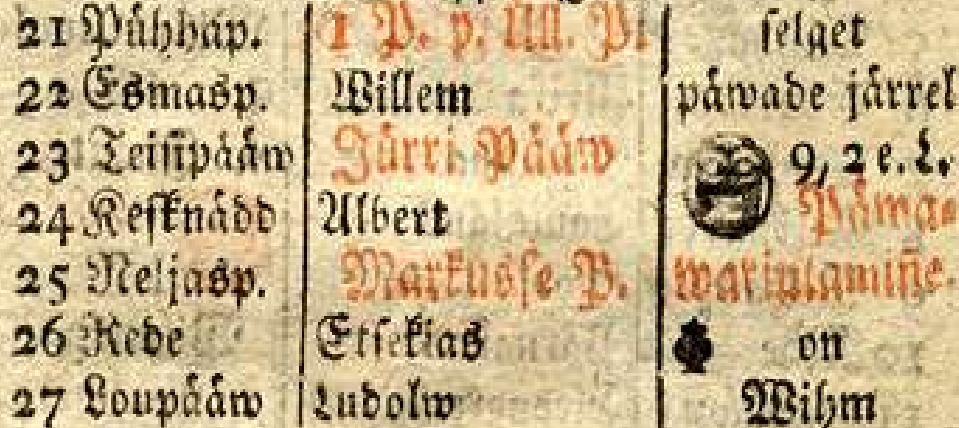 21 Pühhap. 1 P. p. Ül. P. selget
22 Esmasp. Willem päwade järrel
23 Teisipääw Jürri Pääw 9, 2 e. L.
24 Kesknädd Albert Päwa-
25 Neljasp. Markusse P. warjutaminne.
26 Rede Etsekias on
27 Loupääw Ludolw Wihm